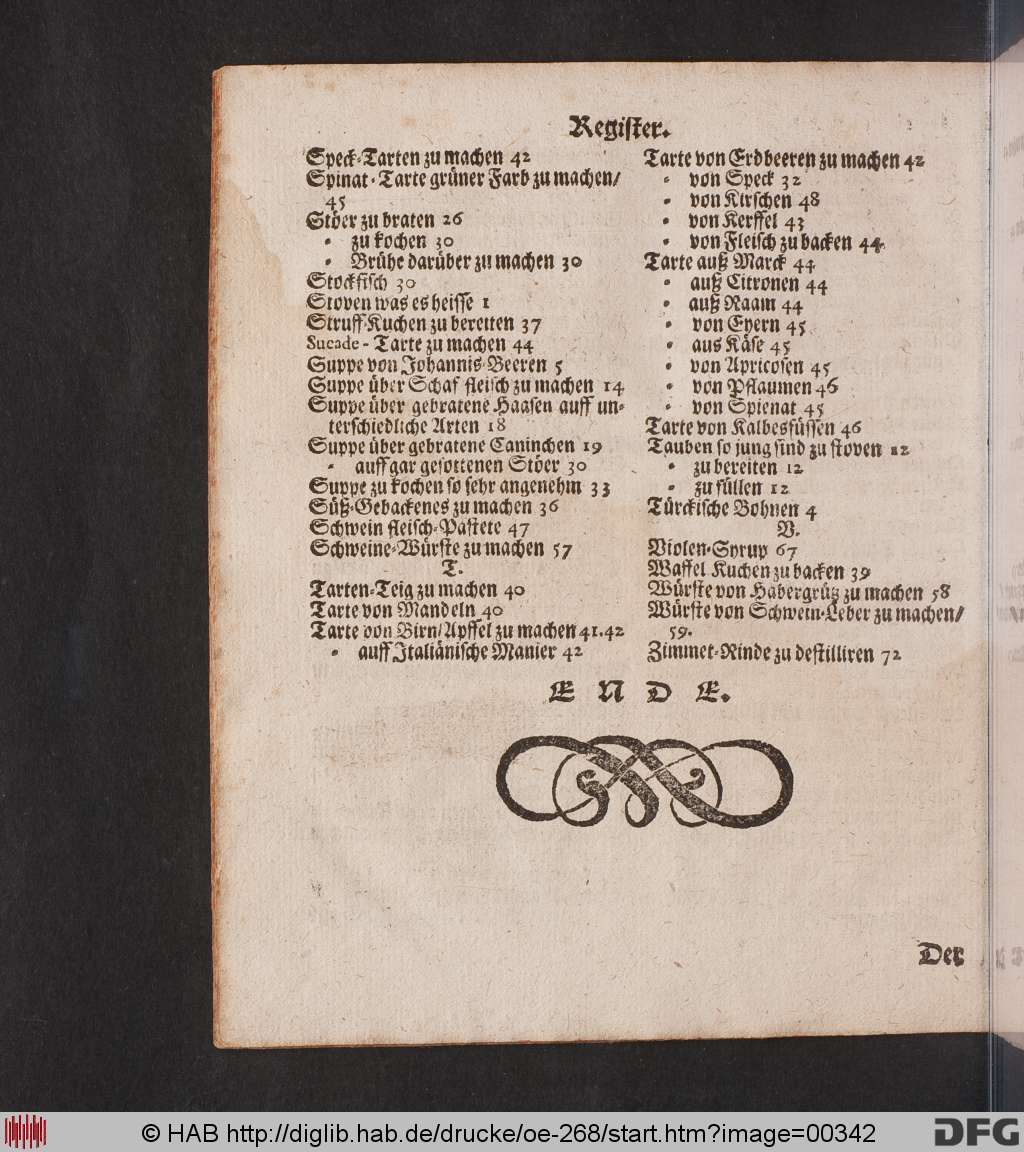 Register.
Speck-Tarten zu machen 42
Spinat-Tarte grüner Farb zu machen/
45
Stöer zu braten 26
- zu kochen 30
- Brühe darüber zu machen 30
Stockfisch 30
Stoven was es heisse 1
Struff-Kuchen zu bereiten 37
Sucade-Tarte zu machen 44
Suppe von Johannis-Beeren 5
Suppe über Schaf fleisch zu machen 14
Suppe über gebratene Haasen auff un-
terschiedliche Arten 18
Suppe über gebratene Caninchen 19
- auff gar gesottenen Stöer 30
Suppe zu kochen so sehr angenehm 33
Süß-Gebackenes zu machen 36
Schwein fleisch-Pastete 47
Schweine-Würste zu machen 57
T.
Tarten-Teig zu machen 40
Tarte von Mandeln 40
Tarte von Birn/Apffel zu machen 41.42
- auff Italiänische Manier 42
Tarte von Erdbeeren zu machen 42
- von Speck 32
- von Kirschen 48
- von Kerffel 43
- von Fleisch zu backen 44.
Tarte auß Marck 44
- auß Citronen 44
- auß Raam 44
- von Eyern 45
- aus Käse 45
- von Apricosen 45
- von Pflaumen 46
- von Spienat 45
Tarte von Kalbesfüssen 46
Tauben so jung sind zu stoven 12
- zu bereiten 12
- zu füllen 12
Türckische Bohnen 4
V.
Violen-Syrup 67
Waffel Kuchen zu backen 39
Würste von Habergrütz zu machen 58
Würste von Schwein-Leber zu machen/
59.
Zimmet-Rinde zu destilliren 72
E N D E.
Der
© HAB http://diglib.hab.de/drucke/oe-268/start.htm?image=00342
DFG